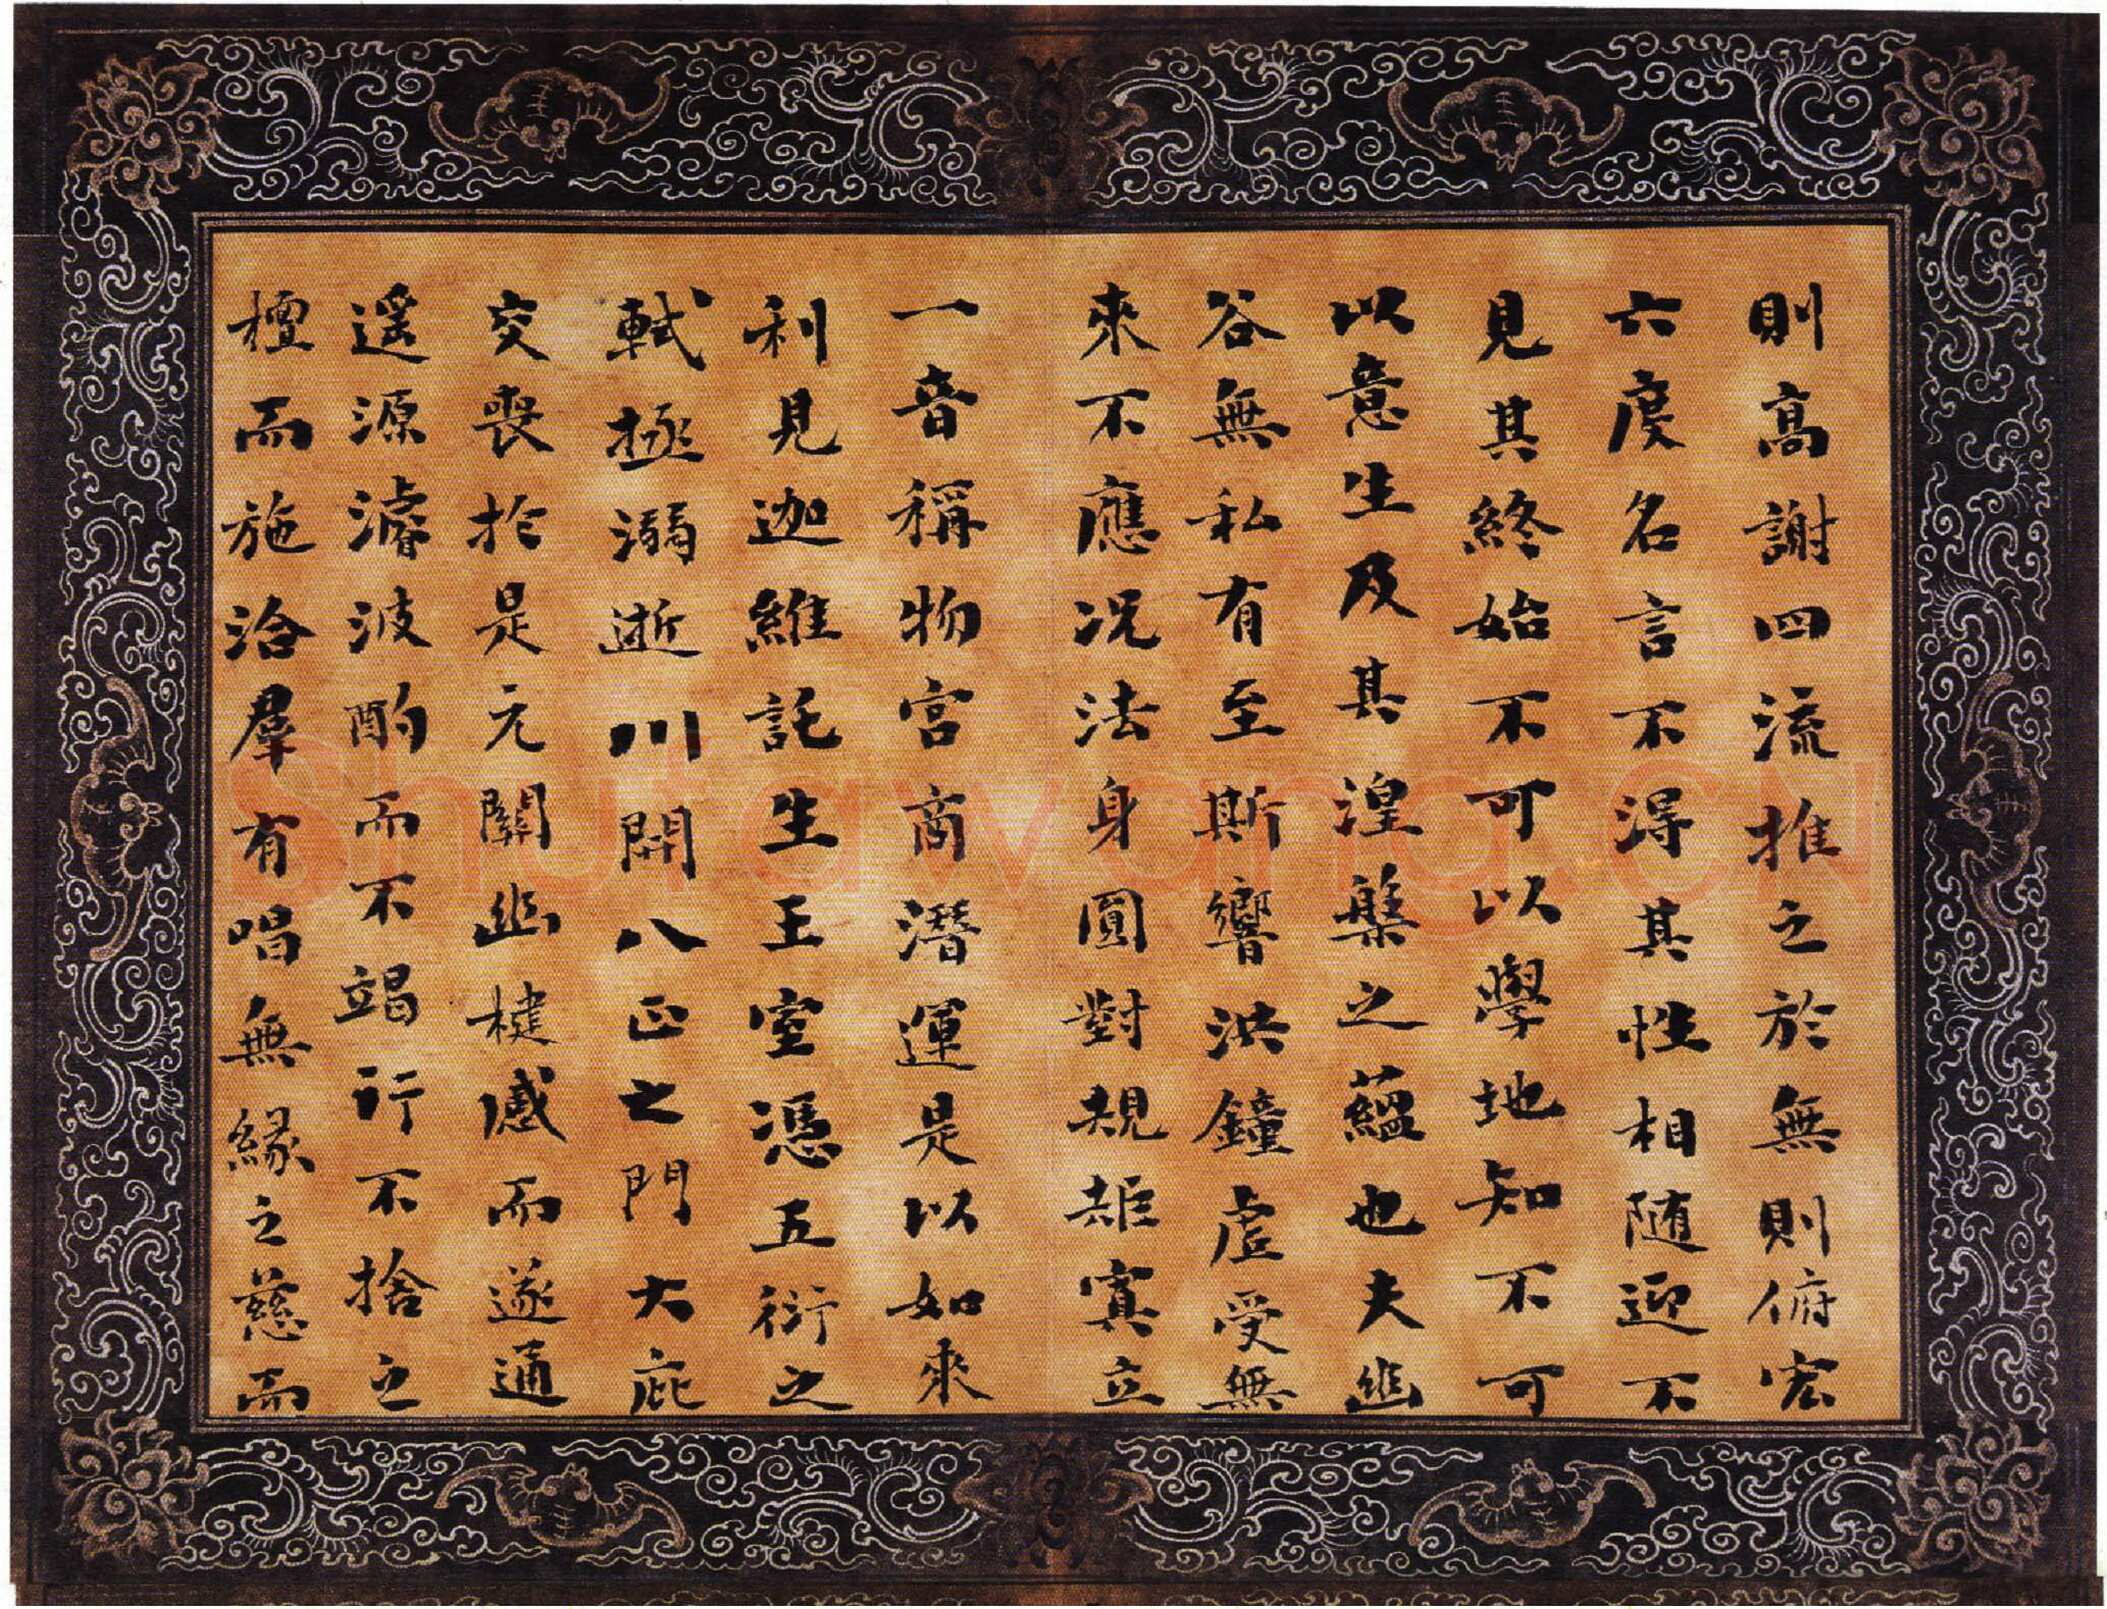 則高謝四流推之於無則俯宏
六度名言不得其性相隨迎不
見其終始不可以學地知不可
以意生及其湼槃之蘊也夫幽
谷無私有至斯響洪鐘虛受無
來不應況法身圓對規矩冥立
一音稱物宮商潛運是以如來
利見迦維託生王室憑五衍之
軾拯溺逝川開八正之門大庇
交喪於是元關幽楗感而遂通
遙源濬波酌而不竭行不捨之
檀而施洽羣有唱無緣之慈而
Shufawang.CN